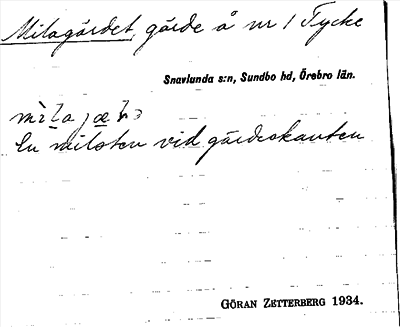 Milagärdet, gärde å nr 1 Tycke
Snavlunda s:n, Sundbo hd, Örebro län.
En milsten vid gärdeskanten
GÖRAN ZETTERBERG 1934.